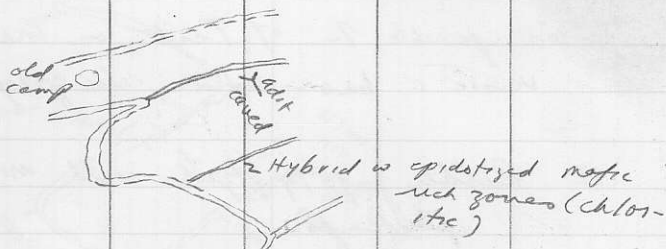 old
camp
adit
caved
Hybrid w epidotized mafic
rich zones (chlor-
itic)